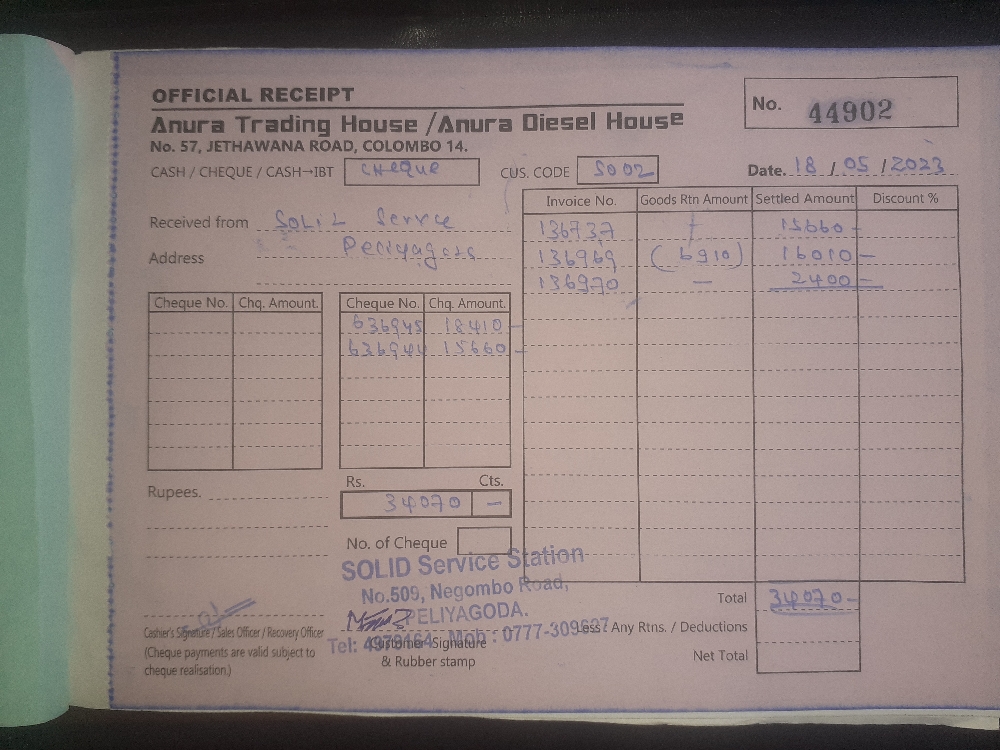 OFFICIAL RECEIPT
No. 44902
Anura Trading House /Anura Diesel House
No. 57, JETHAWANA ROAD, COLOMBO 14.
CASH / CHEQUE / CASH→IBT CHeque CUS. CODE SO 02 Date. 18 / 05 / 2023
Invoice No. Goods Rtn Amount Settled Amount Discount %
Received from Service
Address
136737 15660-
136969 (6910) 16010-
136970 — 2400-
Cheque No. Chq. Amount. Cheque No. Chq. Amount.
636945 18410-
636944 15660-
Rupees.
Rs. Cts.
34070 —
No. of Cheque
SOLID Service Station
No.509, Negombo Road,
PELIYAGODA.
Tel: Mob : 0777-309627
Total 34070-
Less / Any Rtns. / Deductions
Net Total
Cashier's Signature / Sales Officer / Recovery Officer
(Cheque payments are valid subject to
cheque realisation.)
Customer Signature
& Rubber stamp